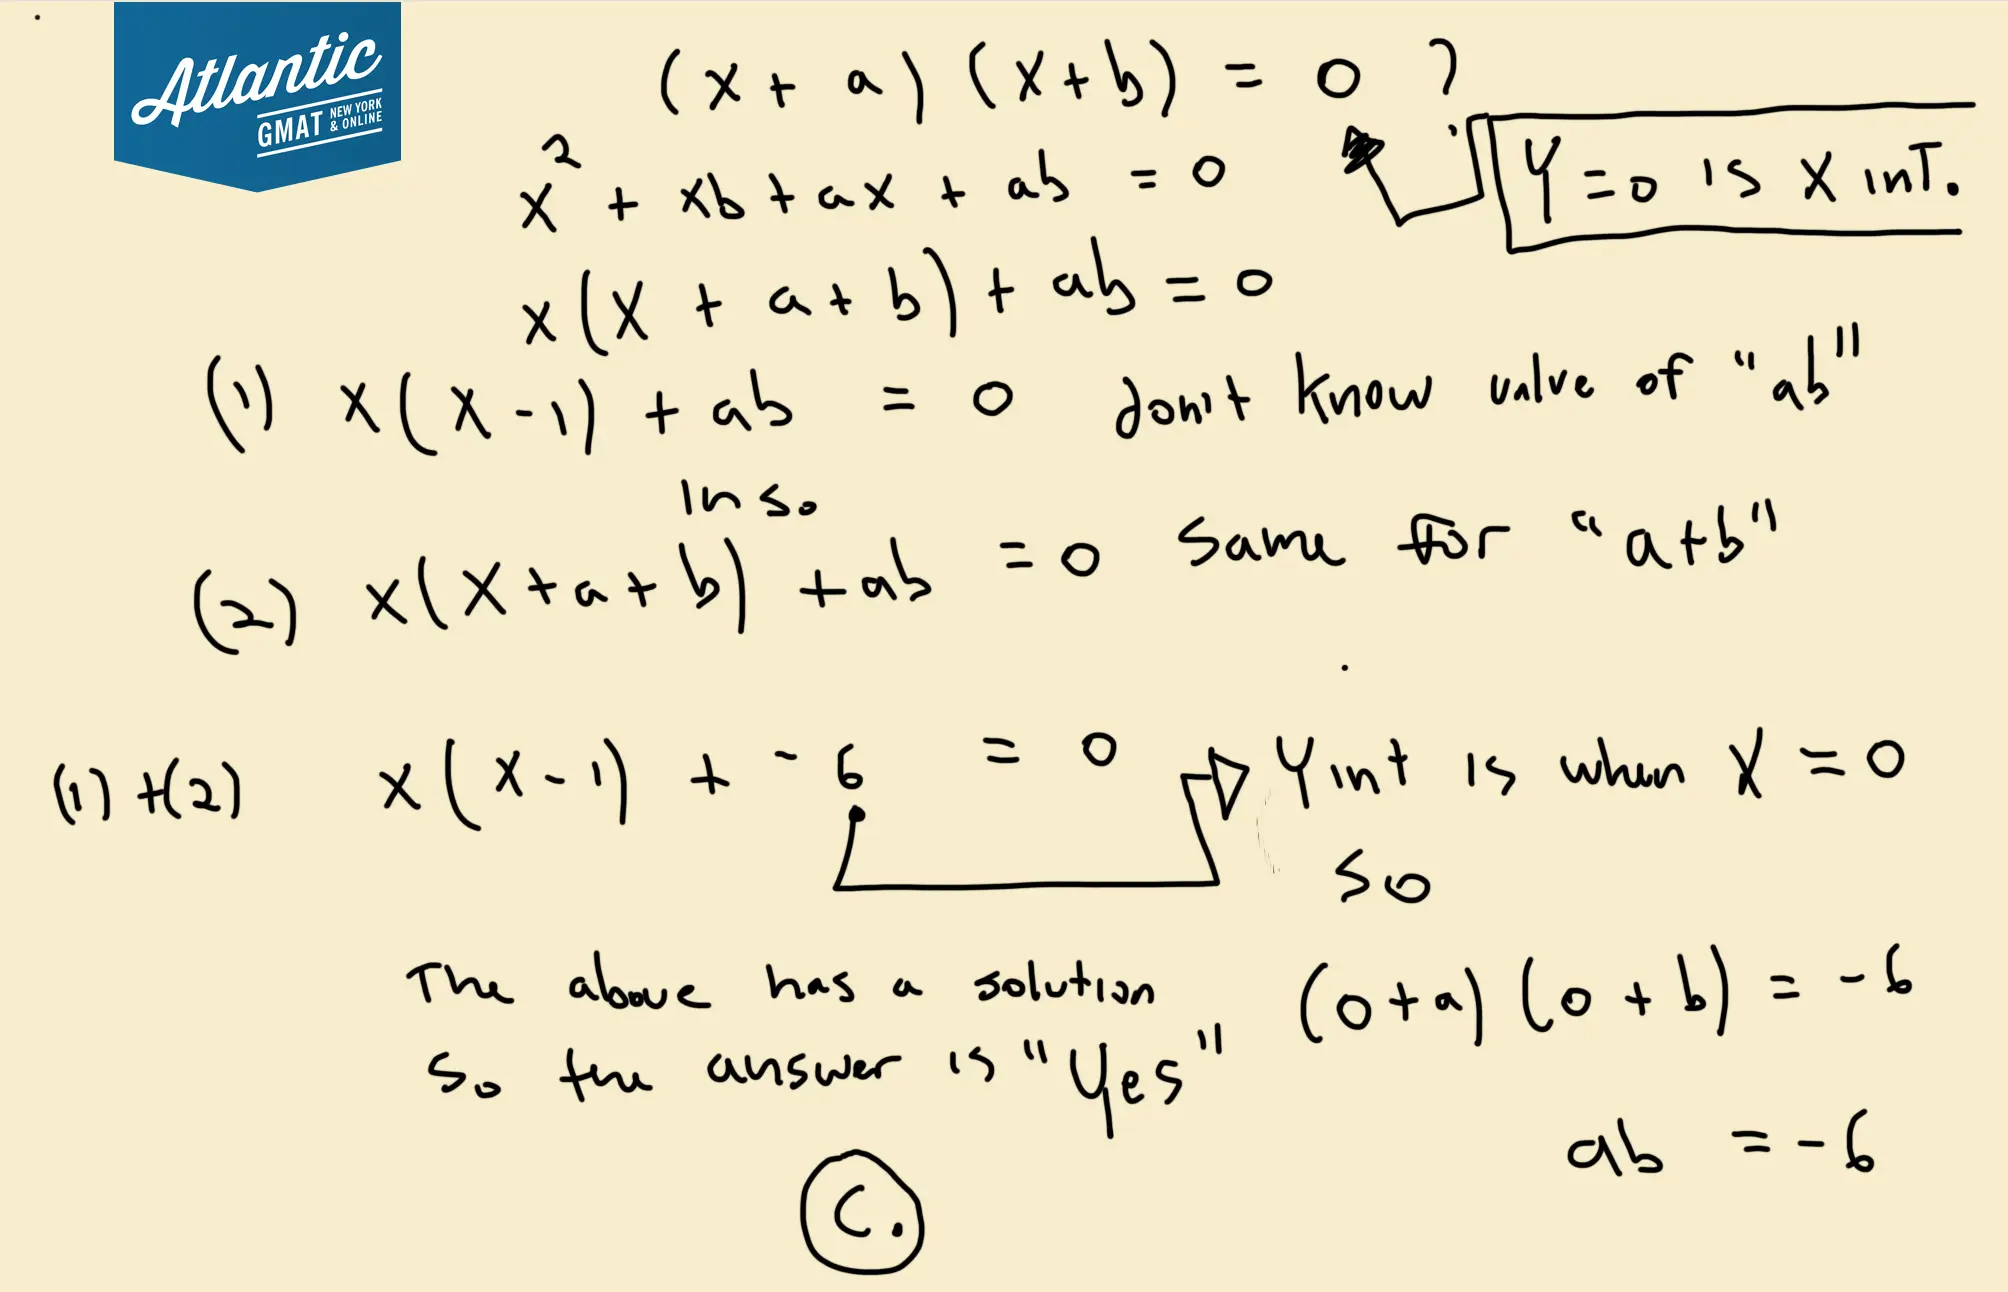 Atlantic
GMAT NEW YORK & ONLINE
(x + a) (x+b) = 0 ?
x² + xb + ax + ab = 0
Y=0 is X inT.
x(x + a + b) + ab = 0
(1) x(x-1) + ab = 0 don't know value of "ab"
in so
(2) x(x+a+b) +ab = 0 same for "a+b"
(1)+(2) x(x-1) + -6 = 0
Y int is when X = 0
so
(0+a) (0+b) = -6
ab = -6
The above has a solution
so the answer is "Yes"
C.